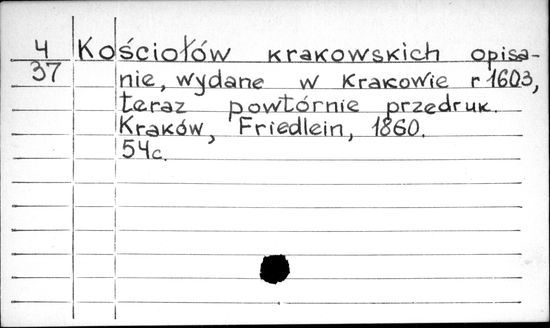 4 Kościołów krakowskich opisa-
37 nie, wydane w Krakowie r 1603,
teraz powtórnie przedruk.
Kraków, Friedlein, 1860.
54c.